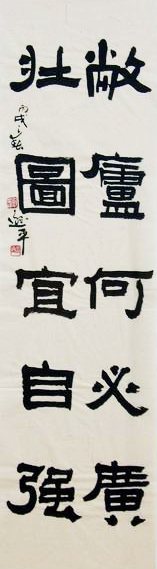 敝廬何必廣
壯圖宜自强
丙戌
平